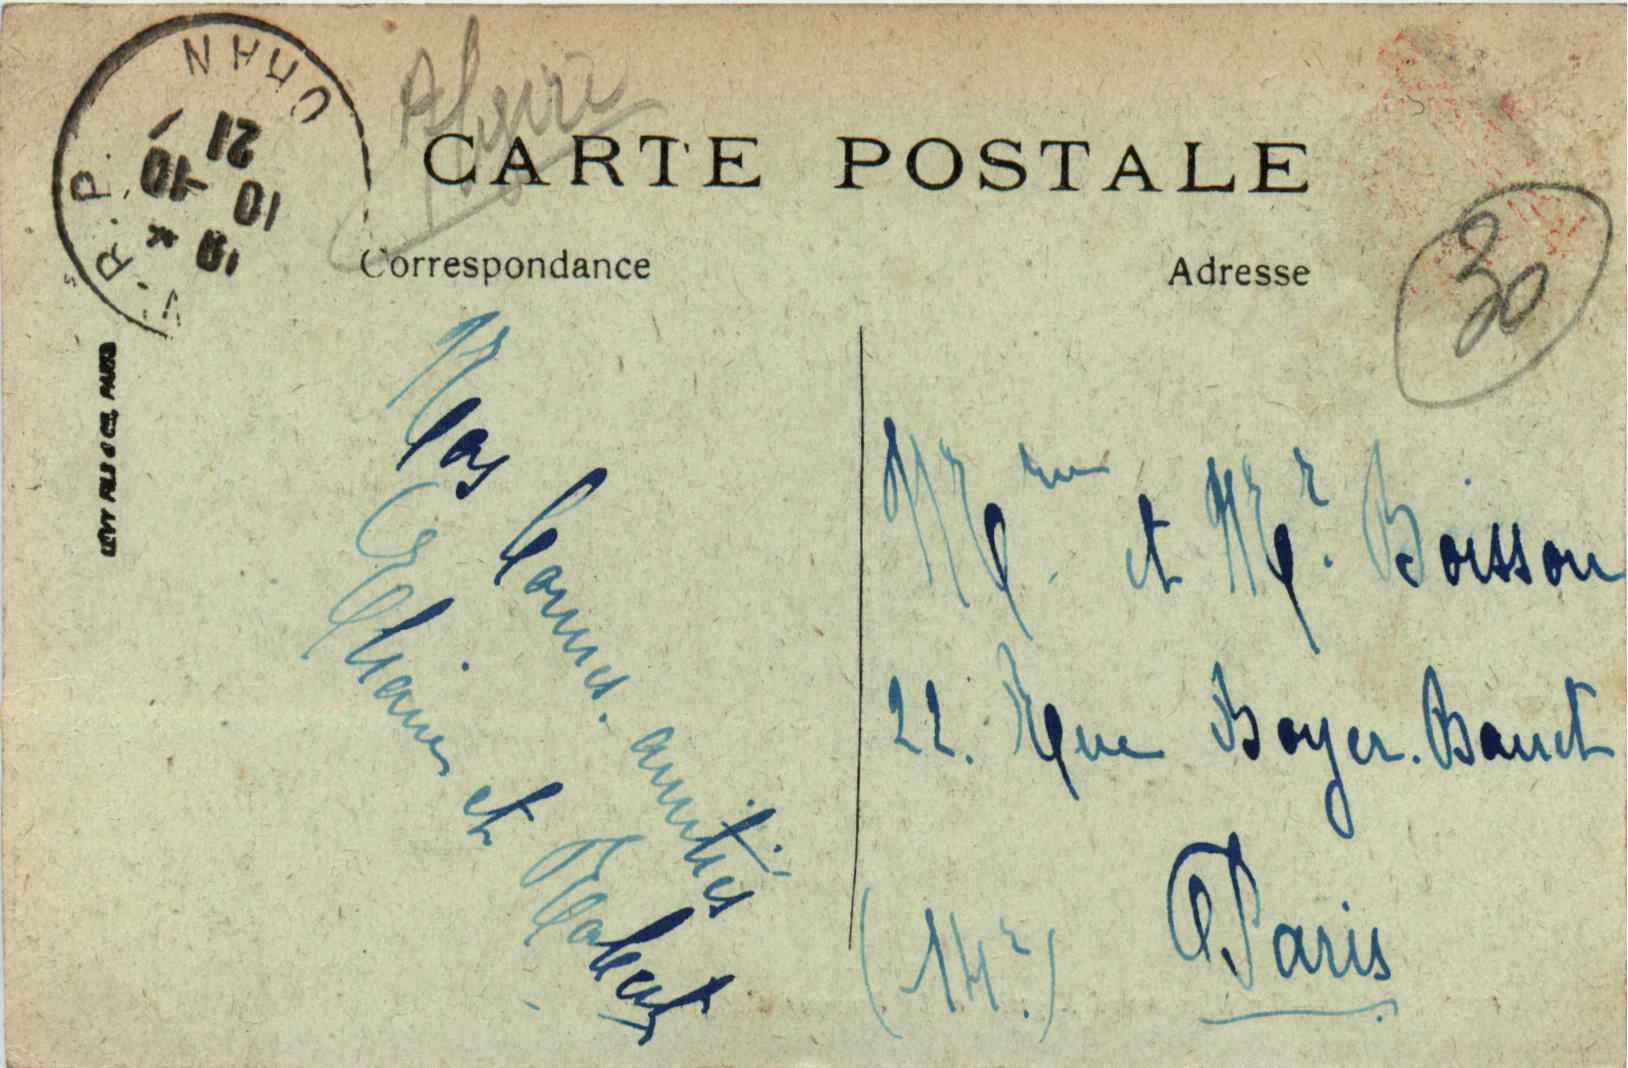 ORAN
R.P.
21
10 -10
19
Algérie
CARTE POSTALE
Correspondance
Adresse
30
LÉVY FILS & CIE, PARIS
Nos bonnes amitiés
et Robert
Mme et Mr. Boisson
22. Rue Boyer-Barret
Paris
(14e)